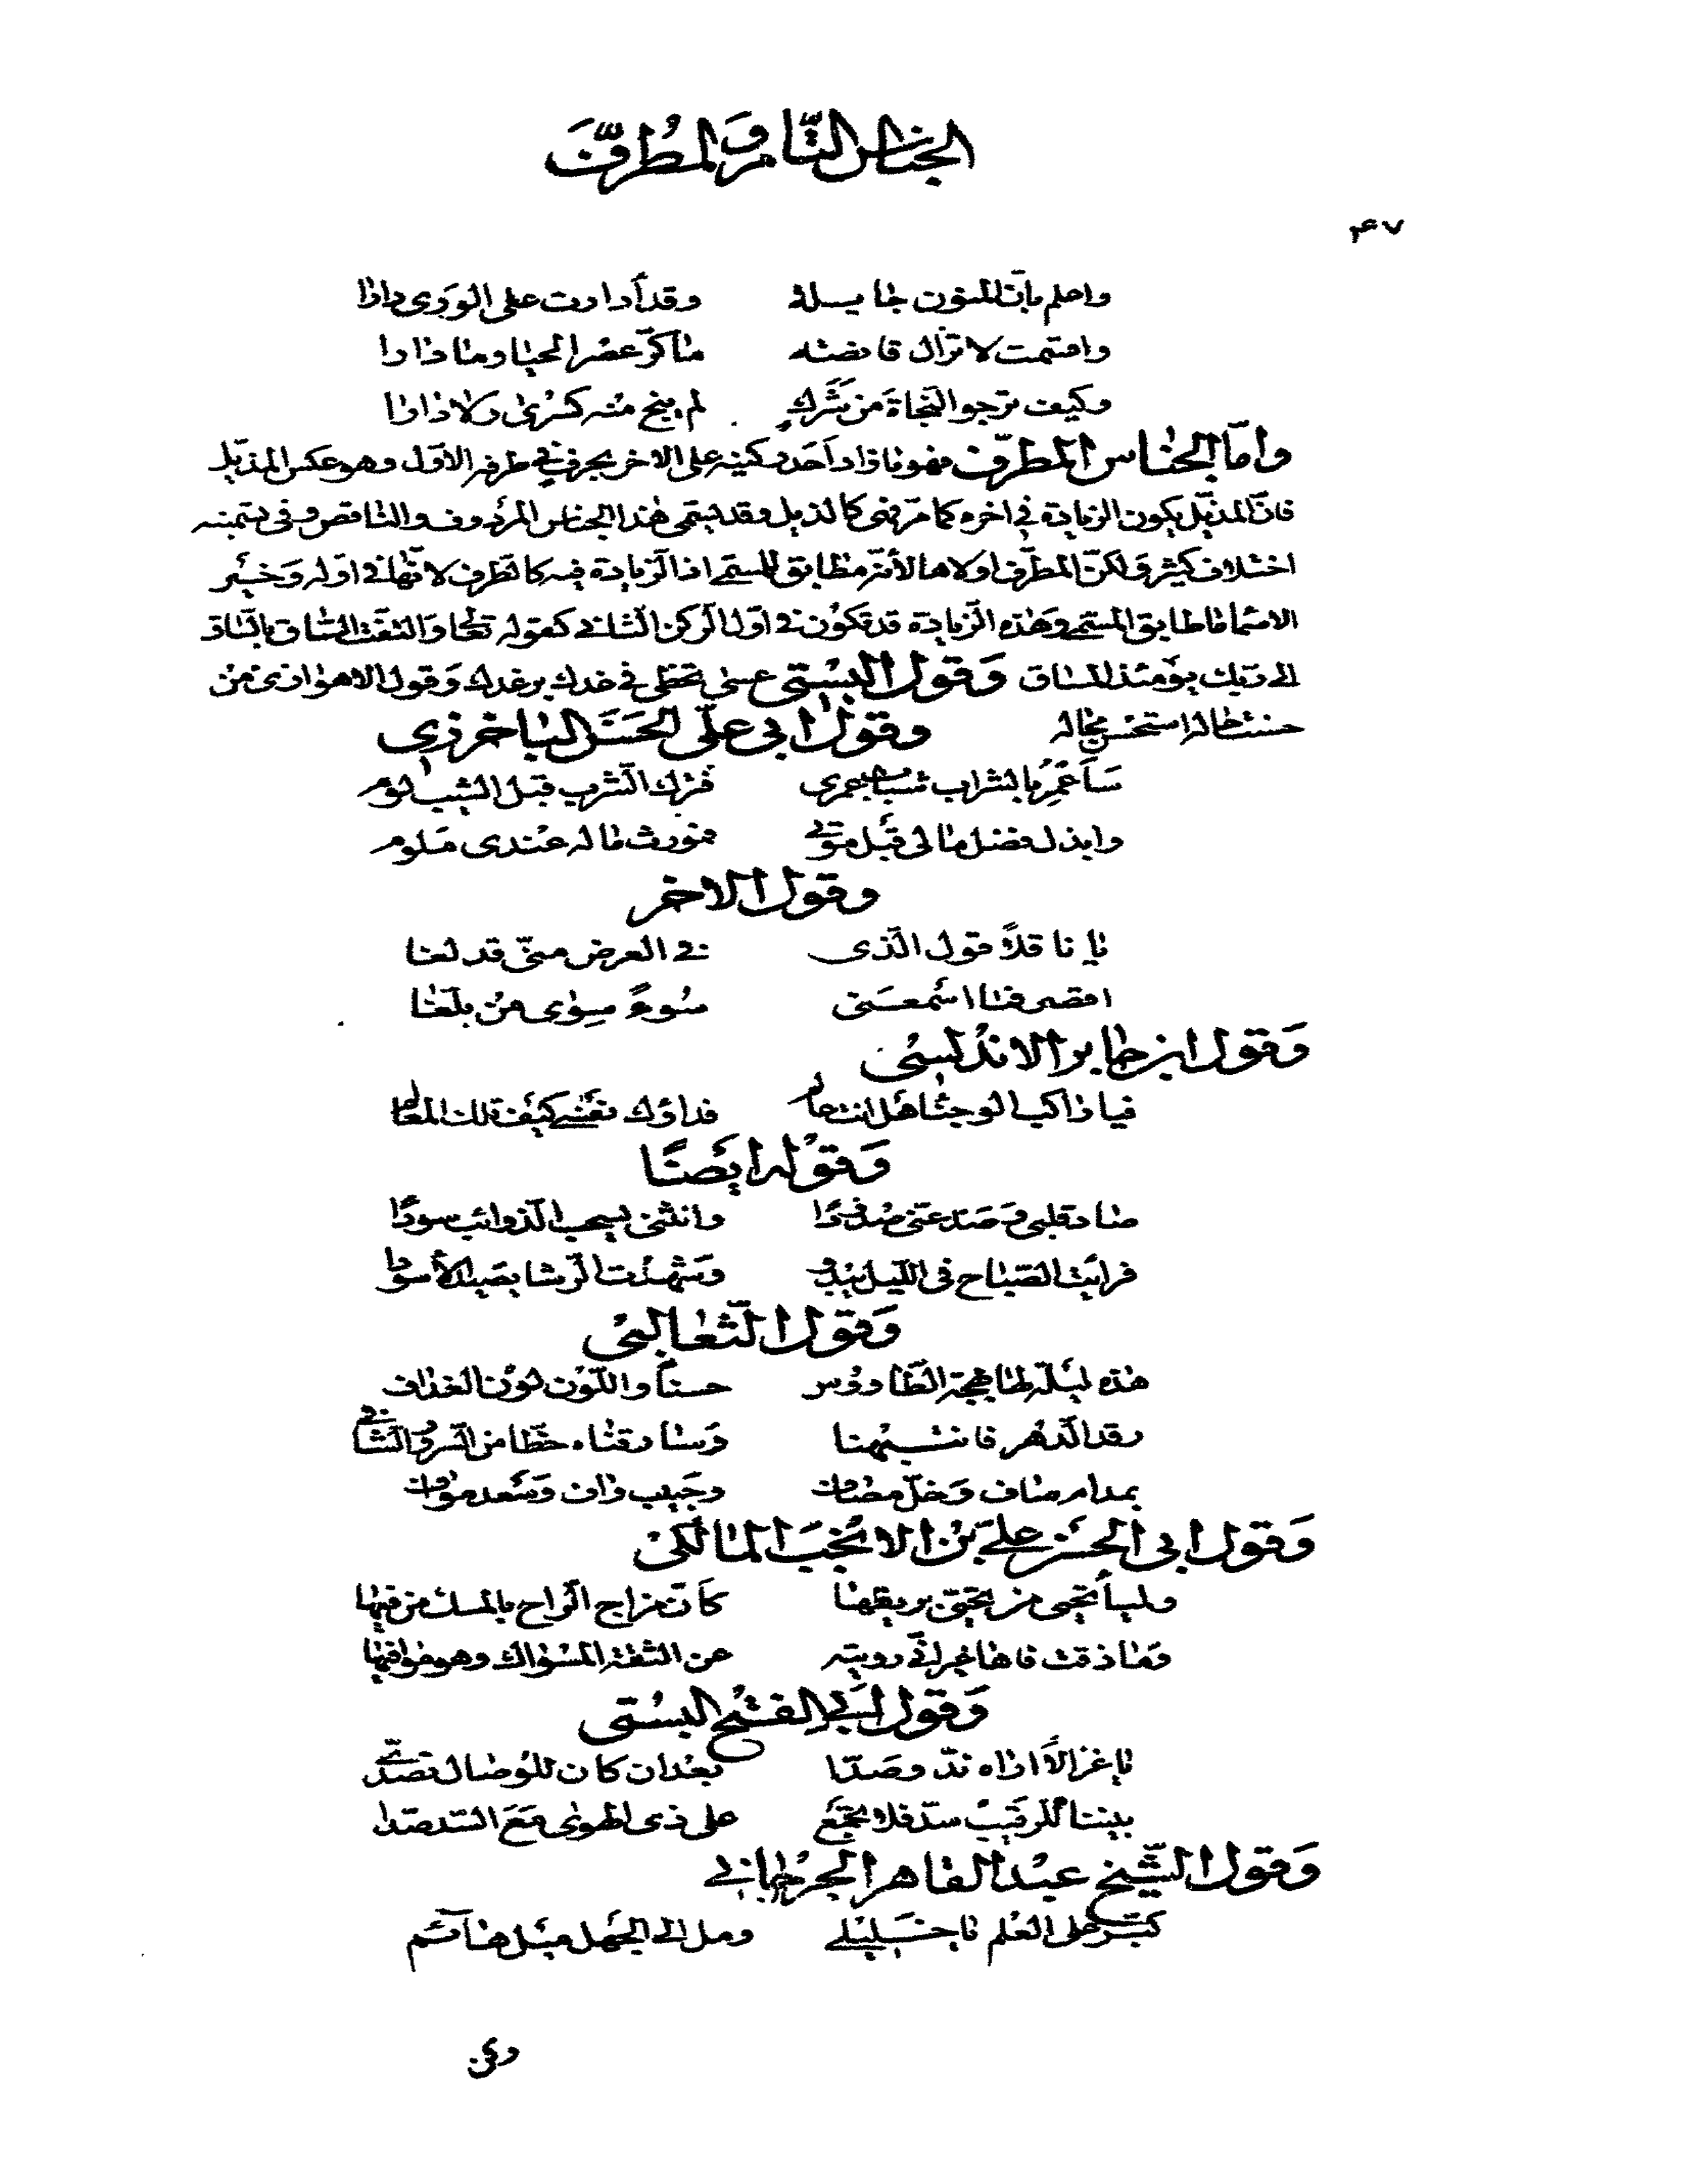 الجناس التّام وَالمُطرّف
۴۷
واعلم بانّ المنون جايسلة وقد أدارت على الوَرٰى دارا
واحتمت لا تزال قانصة ما كرّ عصر المحيا وما دارا
وكيف ترجو النّجاةَ من شَرَكٍ لم ينج منه كسرىٰ ولا دارا
وامّا الجناس المطرّف فهو ما زاد اَحَد ركنيه على الاخر بحرف في طرفه الاوّل وهو عكس المذيّل
فانّ المذيّل يكون الزيادة في اخره كما مرّ فهى كالذيل وقد يسمّى هذا الجناس المردوف والناقص وفى تسميته
اختلاف كثير وَلكنّ المطرّف اولاها لأنّه مطابق للمسمّى اذ الزيادة فيه كالطرف لانّها فى اوله وَخير
الاسماء ما طابق المسمّى وَهذه الزيادة قد تكوُن فى اوّل الركن الثانى كقوله تعالى وَالتفّت السّاق بالسّاق
الى ربّك يوْمئذ المساق وَقول البسْتى عسى تحظى فى غدك برغدك وَقول الاهوازى من
حسنت حاله استحسن محاله وقول ابى على الحَسَن الباخرزى
سَاَعْمِرُ بالشراب شباب عمرى فترك الشرب قبل الشيب لوم
وابذل فضل مالى قبْل موتى فمورث ماله عندى مَلوم
وقول الاخر
يا ناقلاً قول الّذى فى العرض منّى قد لغا
اقصر فما اسْمعَنى سُوءً سِوٰى مَنْ بلّغا
وَقول ابن جابر الاندلسى
فيا راكب الوجناء هَل انت عالم فداؤك نفسى كيْف تلك المعالم
وَقوْله ايضًا
صاد قلبى وَصَدّ عنّى صُدودًا وانثنى يسحب الذوائب سودًا
فرايت الصّباح فى اللّيل يبدو وَشهدْت الرّشا يصيد الأسودا
وَقول الثّعالبى
هذه ليْلة لها بهجة الطّاووُس حسناً واللّوْن لوْن الغداف
رقد الدّهر فانتبهنا وَسارقناه حظّا من السّرور الشافى
بمدام صاف وَخلّ مصاف وحَبيب واف وَسَعد مواف
وَقول ابى الحسَن علىّ بْن الانْجَب المالكى
ولمياء تحيى من تحيّى بريقها كأنّ مزاج الرّاح بالمسك من فيها
وَما ذقت فاها غير انّى رويته عن الثقة المسْواك وهو موافيها
وَقول ابى الفتْح البسْتى
يا غزالاً اراه ندّ وصَدّا بعْد ان كان للوصال تصدّى
بيننا للرقيب سدّ فلا تجمَع على ذى الهوٰى مَعَ السّد صدّا
وَقول الشّيخ عبْد القاهر الجرْجانى
كبّر على العلْم يا خَليلى ومل الى الجهل ميْل هآئم
وعش